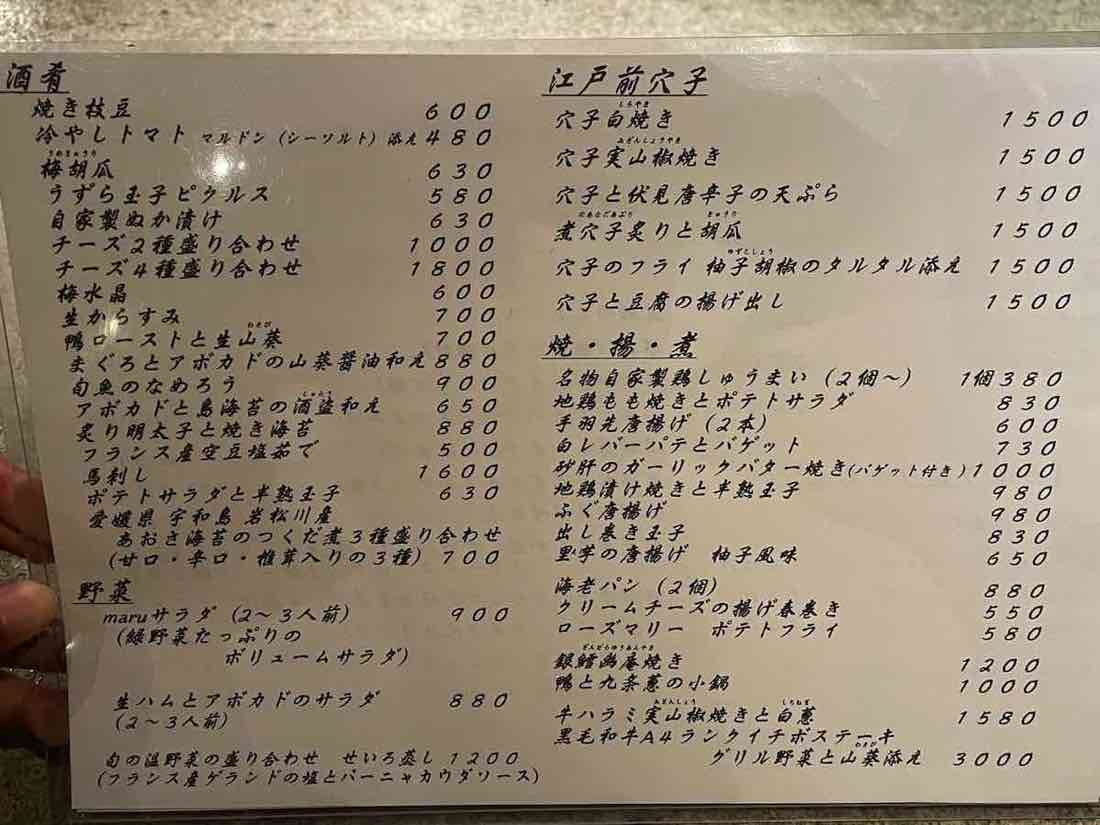 酒肴
焼き枝豆 600
冷やしトマト マルドン (シーソルト) 添え 480
うめきゅうり
梅胡瓜 630
うずら玉子ピクルス 580
自家製ぬか漬け 630
チーズ2種盛り合わせ 1000
チーズ4種盛り合わせ 1800
梅水晶 600
生からすみ 700
わさび
鴨ローストと生山葵 700
まぐろとアボカドの山葵醤油和え 880
旬魚のなめろう 900
しゅとう
アボカドと島海苔の酒盗和え 650
炙り明太子と焼き海苔 880
フランス産空豆塩茹で 500
馬刺し 1600
ポテトサラダと半熟玉子 630
愛媛県 宇和島 岩松川産
あおさ海苔のつくだ煮3種盛り合わせ
(甘口・辛口・椎茸入りの3種) 700
野菜
maruサラダ (2〜3人前) 900
(緑野菜たっぷりの
ボリュームサラダ)
生ハムとアボカドのサラダ 880
(2〜3人前)
旬の温野菜の盛り合わせ せいろ蒸し 1200
(フランス産ゲランドの塩とバーニャカウダソース)
江戸前穴子
しらやき
穴子白焼き 1500
みざんしょうやき
穴子実山椒焼き 1500
穴子と伏見唐辛子の天ぷら 1500
にあなごあぶり きゅうり
煮穴子炙りと胡瓜 1500
ゆずこしょう
穴子のフライ 柚子胡椒のタルタル添え 1500
穴子と豆腐の揚げ出し 1500
焼・揚・煮
名物自家製鶏しゅうまい (2個〜) 1個380
地鶏もも焼きとポテトサラダ 830
手羽先唐揚げ (2本) 600
白レバーパテとバゲット 730
砂肝のガーリックバター焼き(バゲット付き) 1000
地鶏漬け焼きと半熟玉子 980
ふぐ唐揚げ 980
出し巻き玉子 830
里芋の唐揚げ 柚子風味 650
海老パン (2個) 880
クリームチーズの揚げ春巻き 550
ローズマリー ポテトフライ 580
ぎんだらゆうあんやき
銀鱈幽庵焼き 1200
鴨と九条葱の小鍋 1000
みざんしょう しろねぎ
牛ハラミ実山椒焼きと白葱 1580
黒毛和牛A4ランクイチボステーキ
わさび
グリル野菜と山葵添え 3000